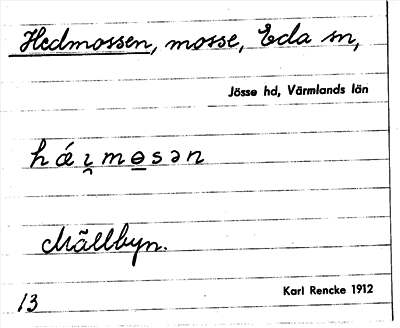 Hedmossen, mosse, Eda sn,
Jösse hd, Värmlands län
hǽı̯mɵ̲sən
Mällbyn.
13
Karl Rencke 1912